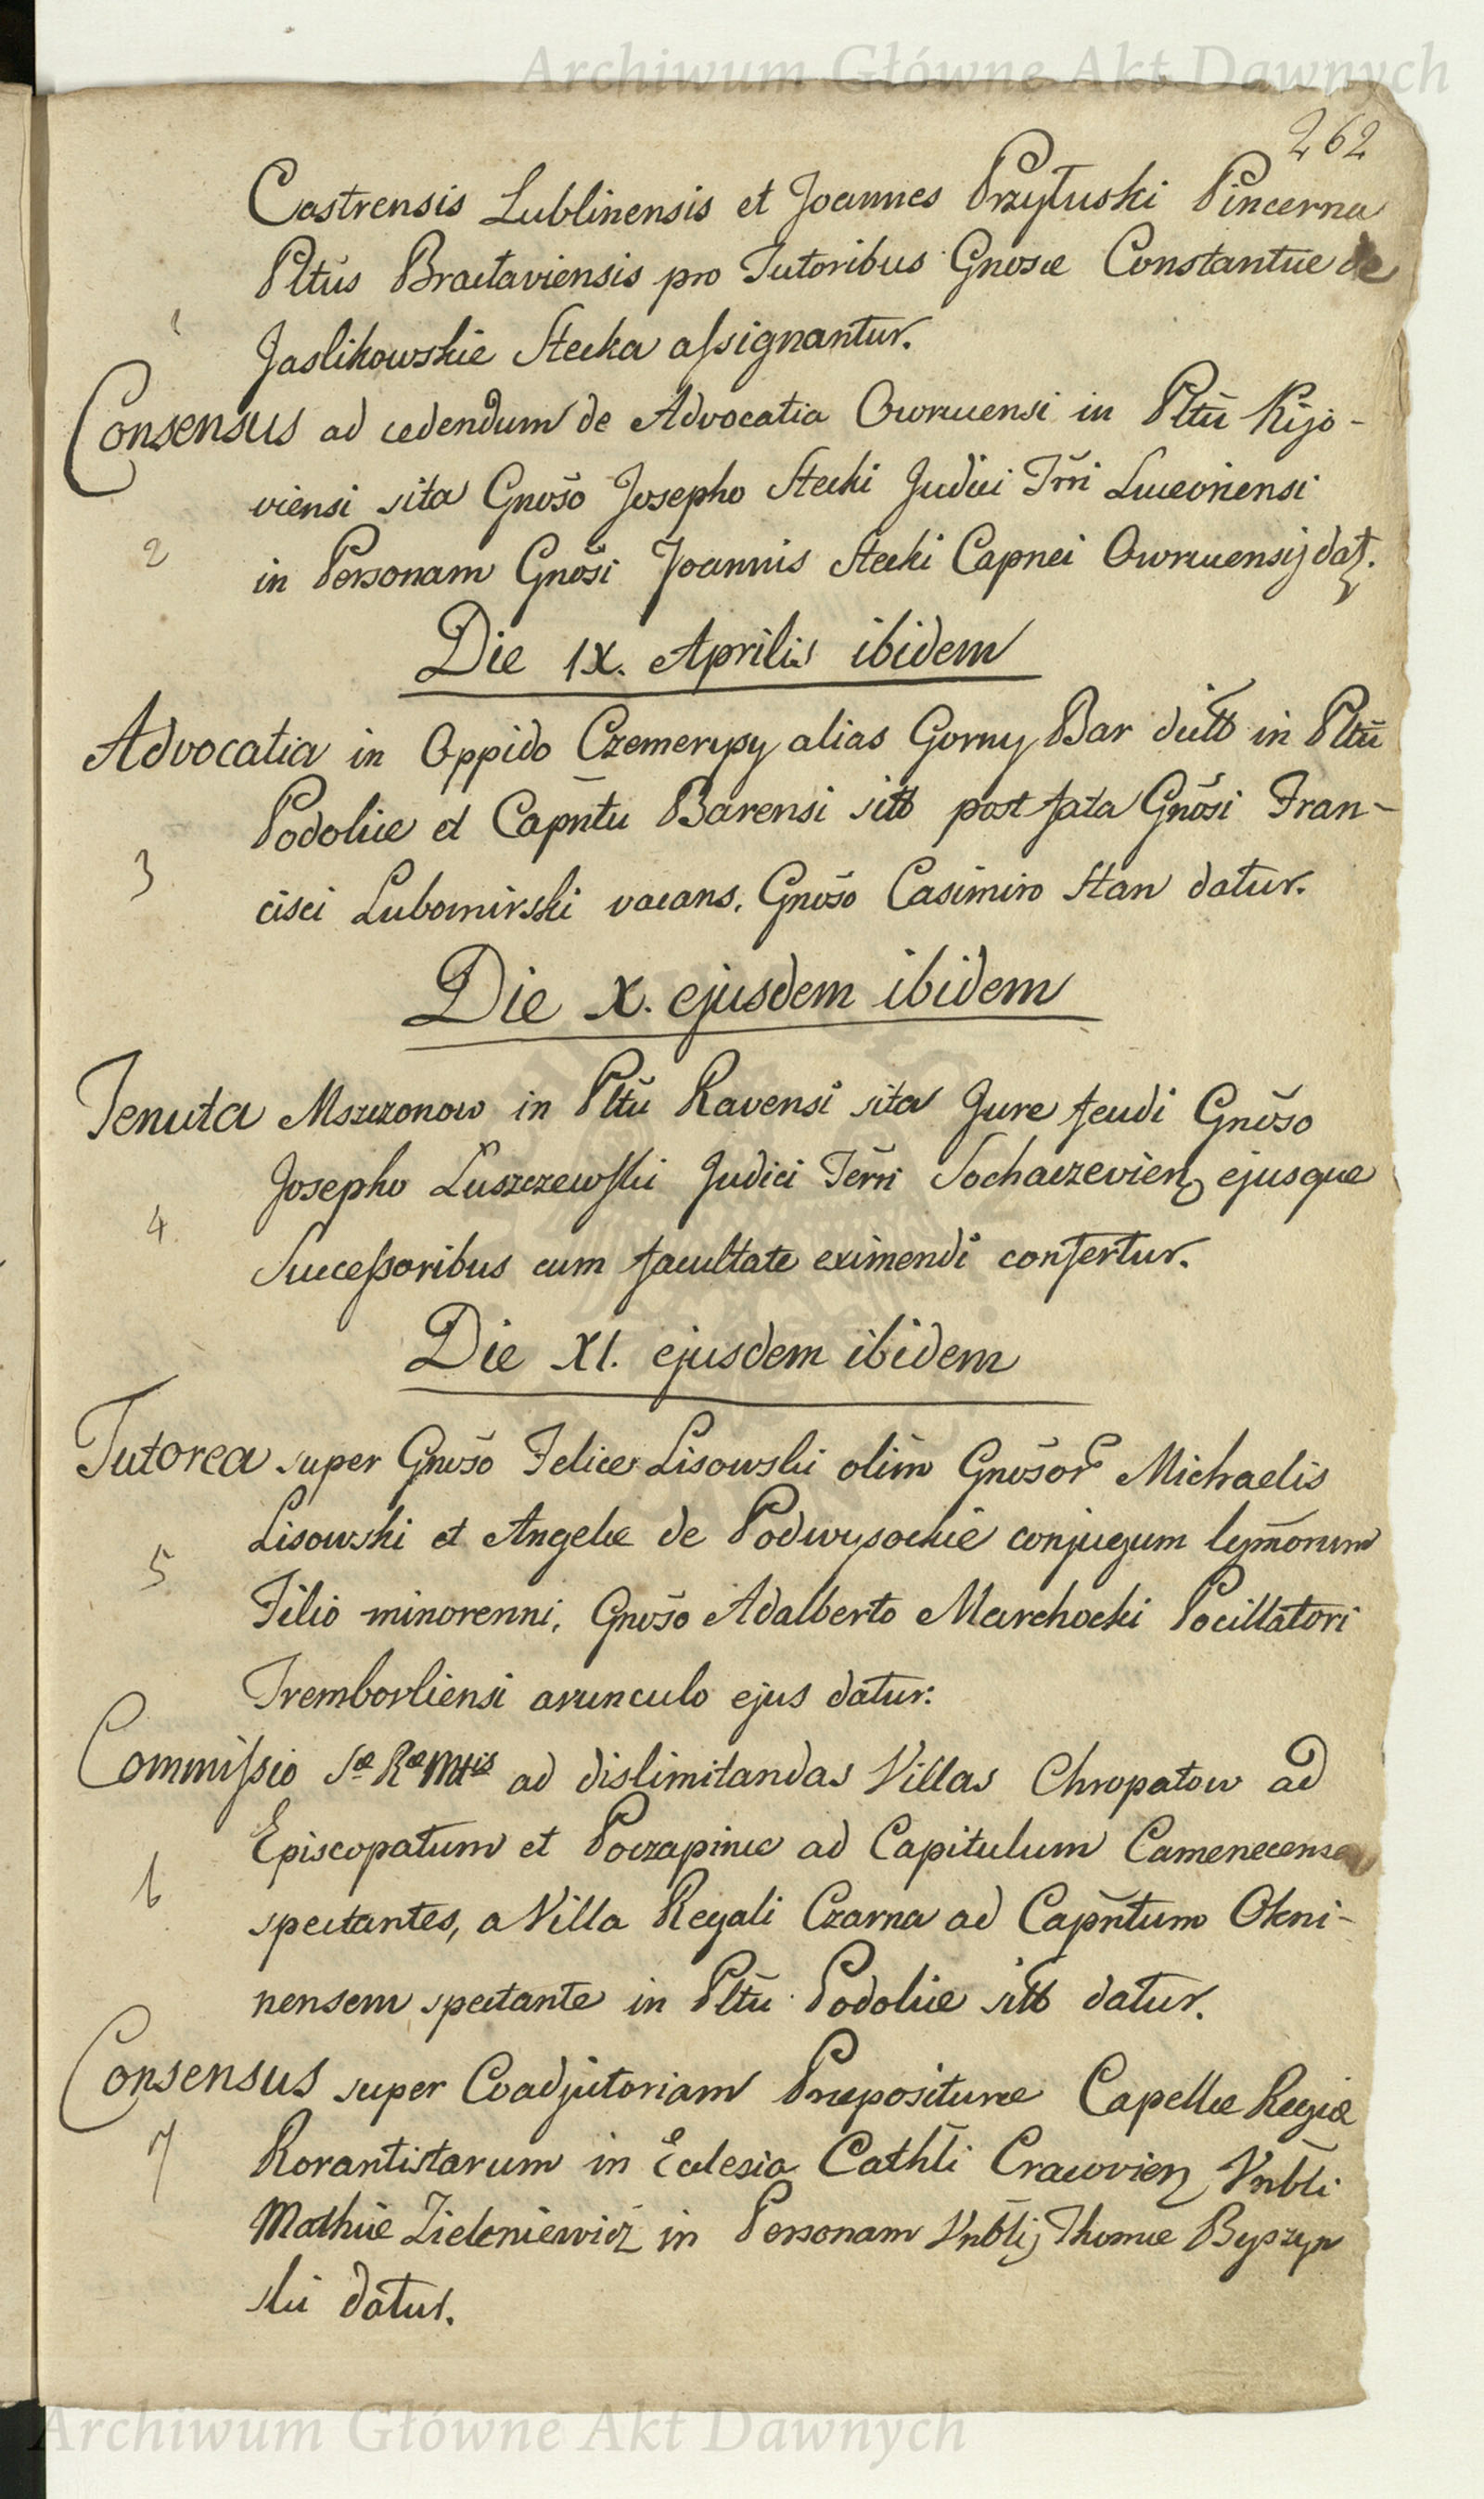 Archiwum Główne Akt Dawnych
262
Castrensis Lublinensis et Joannes Przyłuski Pincerna
Pltūs Braclaviensis pro Tutoribus Gnosæ Constantiæ de
1
Jaslikowskie Stecka aſsignantur.
Consensus ad cedendum de Advocatia Owrucensi in Pltū Kijo-
viensi sita Gnōso Josepho Stecki Judici Trri Luceoriensi
2
in Personam Gnōsi Joannis Stecki Capnei Owrucensis dat.
Die IX. Aprilis ibidem
Advocatia in Oppido Czemerysy alias Gorny Bar in Pltū
Podoliæ et Capn̄tu Barensi post fata Gnōsi Fran-
3
cisci Lubomirski vacans, Gnōso Casimiro Stan datur.
Die X. ejusdem ibidem
Tenuta Mszczonow in Pltū Ravensi sita Jure feudi Gnōso
Josepho Luszczewſki Judici Terri Sochaczevien ejusque
4
Succeſsoribus cum facultate eximendi confertur.
Die XI. ejusdem ibidem
Tutorea super Gnōso Felice Lisowski olim Gnōsor Michaelis
Lisowski et Angelæ de Podwysockie conjugum lgmorum
5
Filio minorenni, Gnōso Adalberto Marchocki Pocillatori
Tremborliensi avunculo ejus datur:
Commiſsio Sæ Ræ Mttis ad dislimitandas Villas Chropatow ad
Episcopatum et Poczapince ad Capitulum Camenecense
6
spectantes, a Villa Regali Czarna ad Capn̄tum Okni-
nensem spectante in Pltū Podoliæ datur.
Consensus super Coadjutoriam Præposituræ Capellæ Regiæ
7
Rorantistarum in Eclesia Cathli Cracovien Vnbli
Mathiæ Zieleniewicz in Personam Vnblis Thomæ Byszyn
ski datus.
Archiwum Główne Akt Dawnych